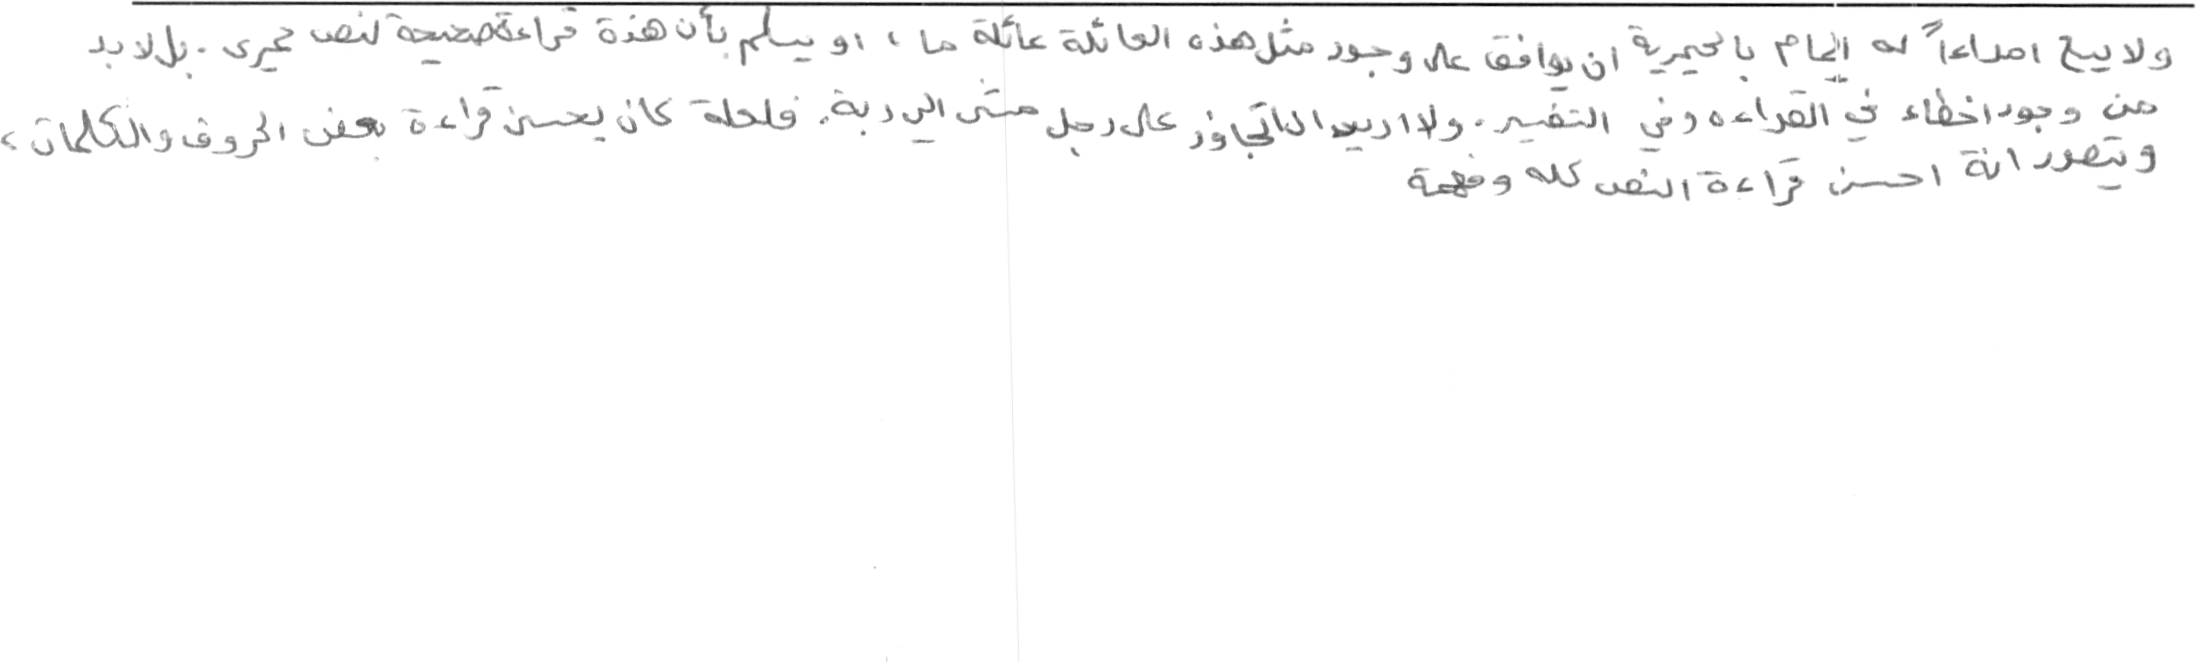 ولا يسع امراءاً له إلمام بالحميرية ان يوافق على وجود مثل هذه العائلة عائلة ما ، او يسلم بأن هذة قراءة صحيحة لنص حميرى . بل لا بد
من وجود اخطاء في القراءه وفي التفسير . ولا اريد ان اتجاوز على رجل مشى الى ربة . فلعلة كان يحسن قراءة بعض الحروف والكلمات ،
ويتصور انة احسن قراءة النص كله وفهمة